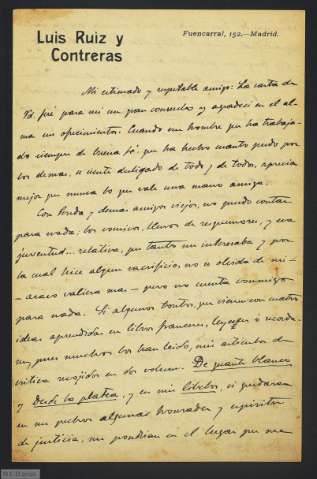 Luis Ruiz y
Contreras
Fuencarral, 152.—Madrid.
Mi estimado y respetable amigo: La carta de
Vd. fué para mí un gran consuelo y agradecí en el al-
ma sus ofrecimientos. Cuando un hombre que ha trabaja-
do siempre de buena fé que ha hecho cuanto pudo por
los demas, se siente desligado de todo y de todos, aprecia
mejor que nunca lo que vale una mano amiga.
Con y demás amigos viejos, no puedo contar
para nada; los comicos, llenos de resquemores, y esa
juventud... relativa, que tanto me interesaba y por
la cual hice algun sacrificio, no se olvida de mi —
acaso valiera mas — pero no cuenta conmigo
para nada. Si algunos tontos, que viven con cuatro
ideas aprendidas en libros franceses, leyesen ó recorda-
sen, pues muchos los han leido, mis articulos de
critica recojidos en dos volum. De guante blanco
y Desde la platea, y en mis libelos, si quedaran
en sus pechos algunas honradez y espiritu
de justicia, me pondrian en el lugar que me